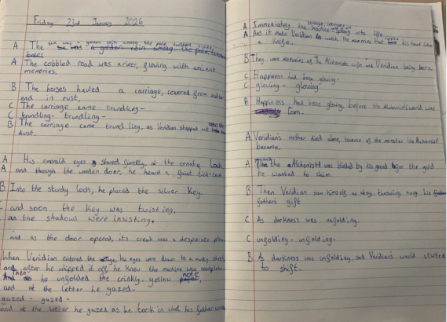 Friday 23rd January 2026
A The
A The cobbled road was a river, flowing with ancient
memories.
B The horses hauled a carriage, covered from
and in rust,
C The carriage came trundling -
C trundling - trundling -
B The carriage came trundling, as Veridian stopped
dust.
A His emerald eyes stared firmly at the creaky lock,
A and though the wooden door, he heard a quiet tick tock.
B Into the sturdy lock, he placed the silver key.
C and soon the key was twisting,
as the shadows were insisting,
and as the door opened, its creak was a desperate
When Veridian entered the his eyes were down to a
and after he whipped it off he knew the machine was
to be unfolded the crinkly yellow
and at the letter he gazed.
gazed - gazed -
and at the letter he gazed as he took in what his father
A Immediately, the into life.
A And it made Veridian the memories that his head like
a knife.
B They were memories of The Alchemist's wife and Veridian being born.
C Happiness had been glowing -
C glowing - glowing
B Happiness had been glowing, before the Alchemist's world was
torn.
A Veridian's mother died along, because of the monster the Alchemist
became.
A the Alchemist was blinded by his greed for the gold
he wanted to claim.
B Then Veridian saw himself as
father's gift
C As darkness was unfolding,
C unfolding - unfolding -
B As darkness was unfolding, and Veridian's world started
to shift.